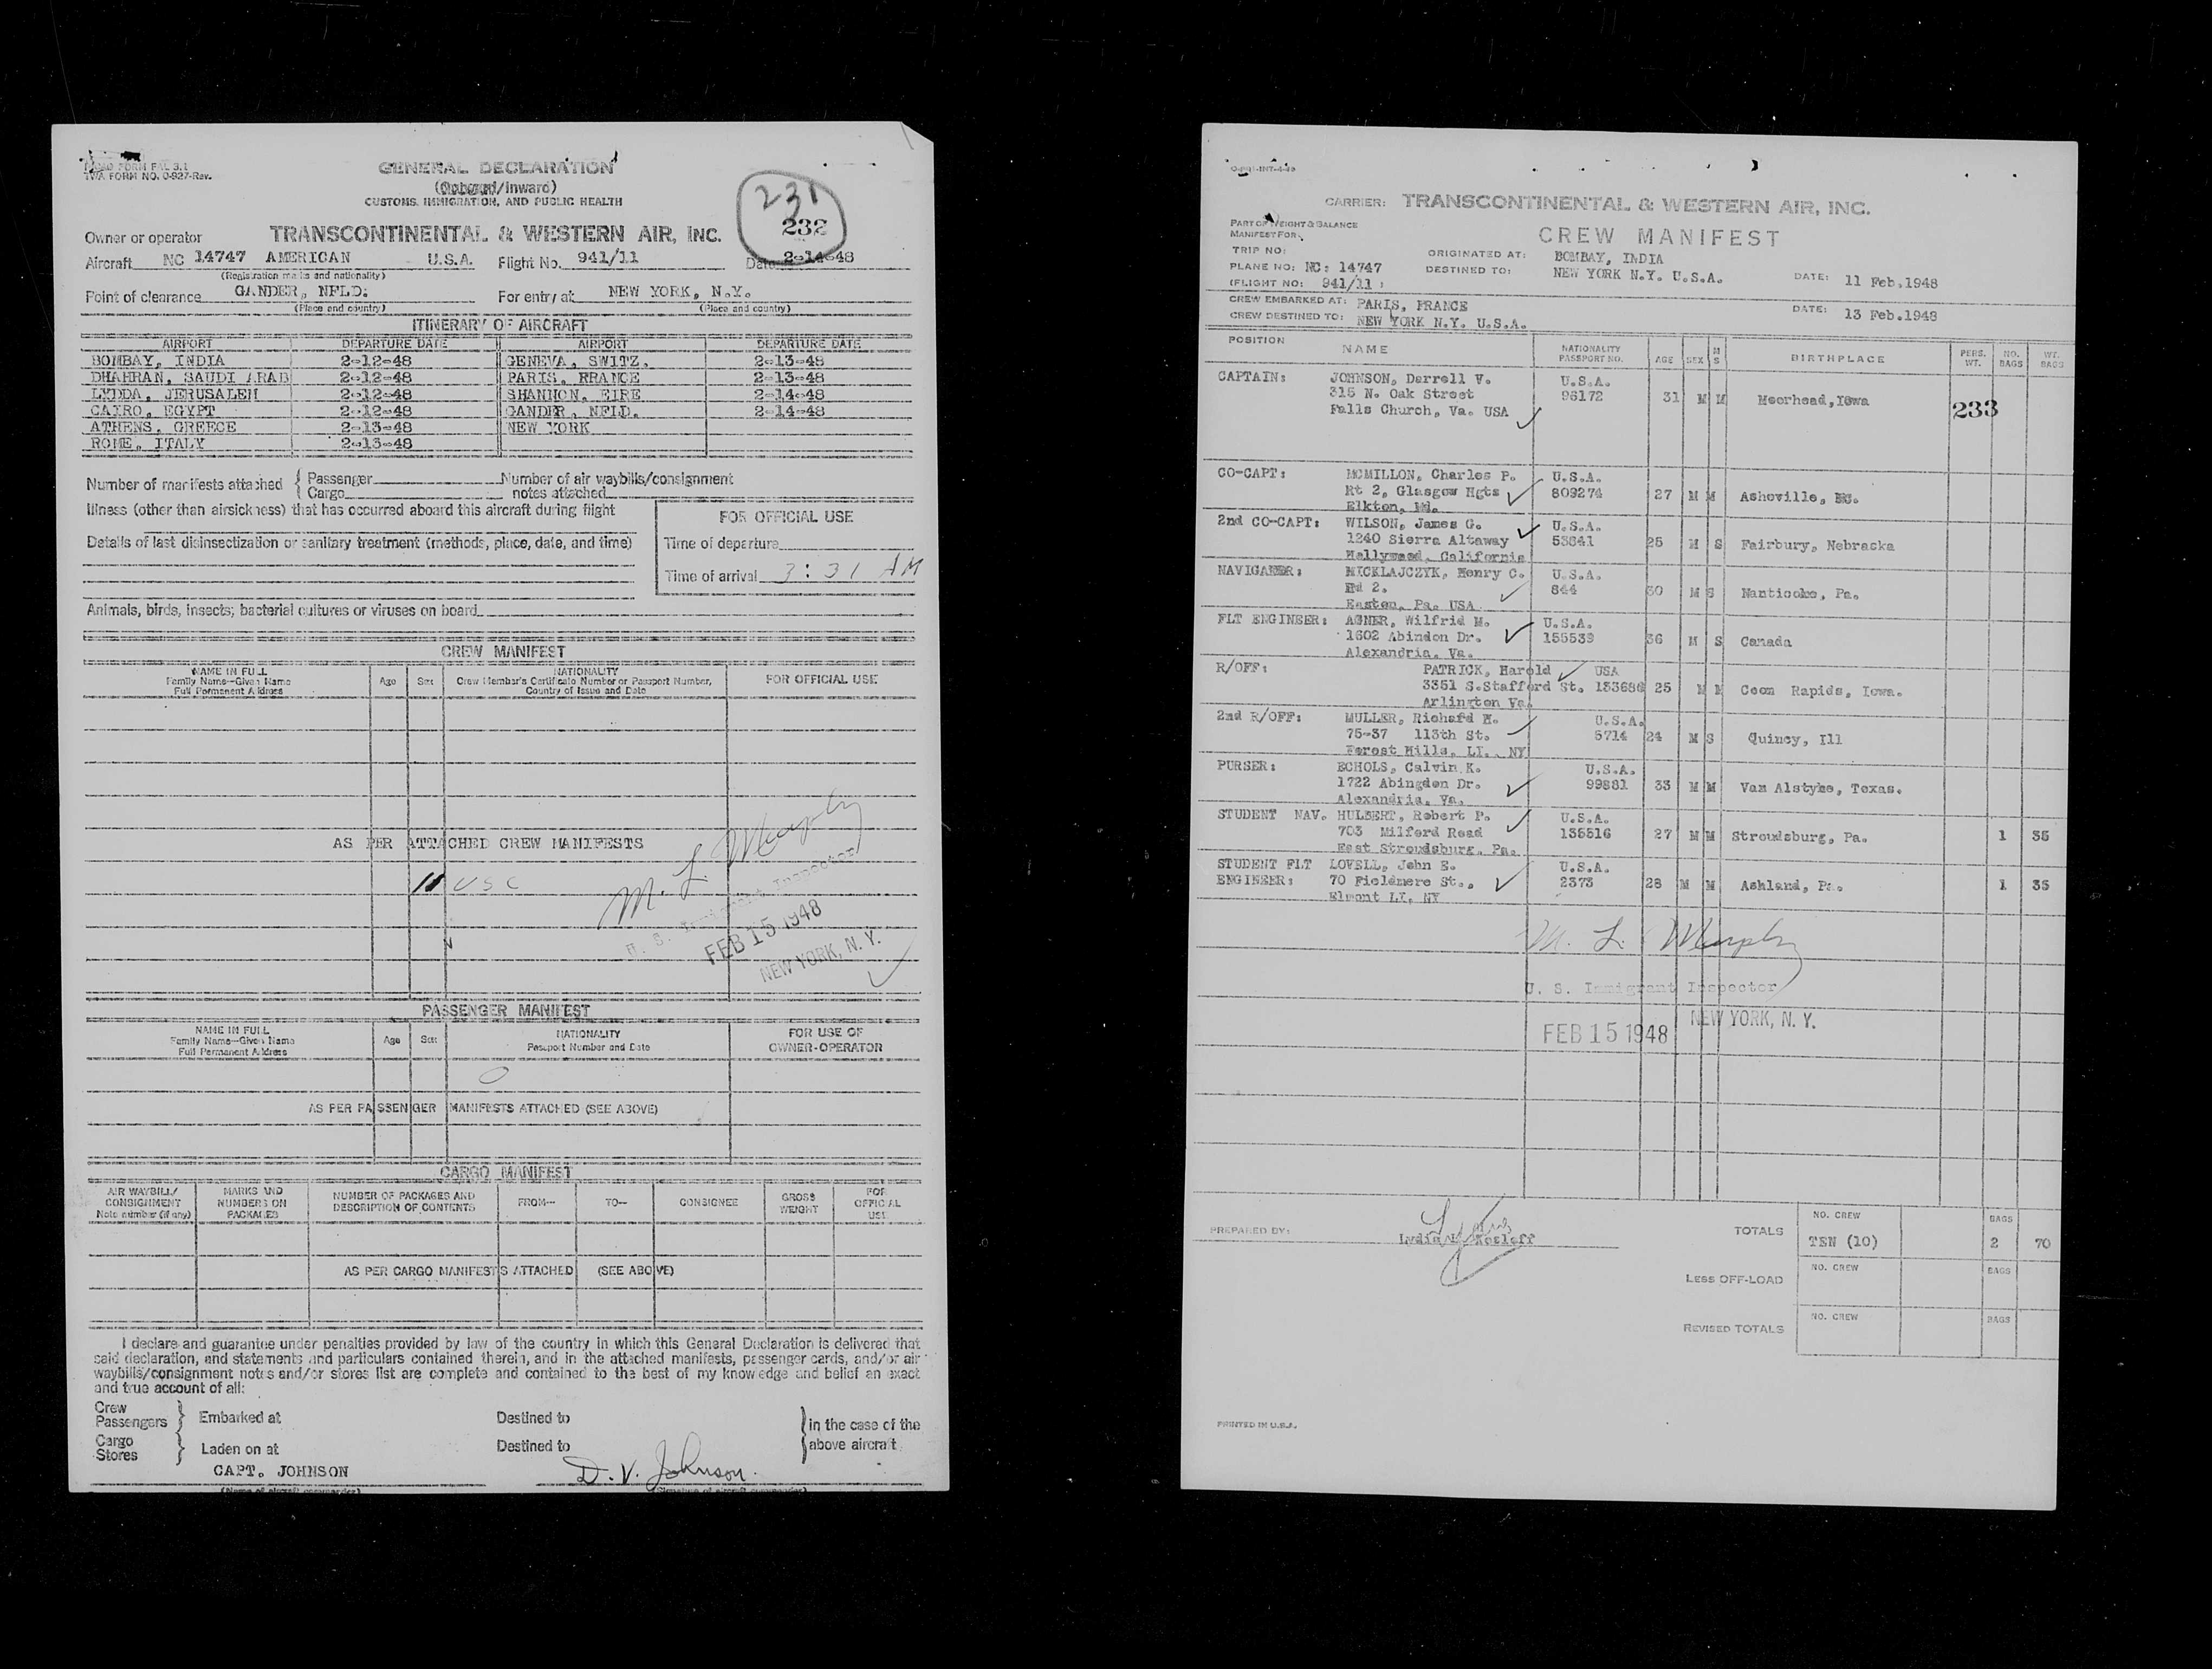 TWA FORM NO. 0-927-Rev.
GENERAL DECLARATION
(Outward/Inward)
CUSTOMS, IMMIGRATION, AND PUBLIC HEALTH
231
232
Owner or operator TRANSCONTINENTAL & WESTERN AIR, INC.
Aircraft NC 14747 AMERICAN U.S.A. Flight No. 941/11 Date 2-14-48
(Registration marks and nationality)
Point of clearance GANDER, NFLD. For entry at NEW YORK, N.Y.
(Place and country) (Place and country)
ITINERARY OF AIRCRAFT
AIRPORT DEPARTURE DATE AIRPORT DEPARTURE DATE
BOMBAY, INDIA 2-12-48 GENEVA, SWITZ. 2-13-48
DHAHRAN, SAUDI ARAB 2-12-48 PARIS, FRANCE 2-13-48
LYDDA, JERUSALEM 2-12-48 SHANNON, EIRE 2-14-48
CAIRO, EGYPT 2-12-48 GANDER, NFLD. 2-14-48
ATHENS, GREECE 2-13-48 NEW YORK
ROME, ITALY 2-13-48
Number of manifests attached { Passenger Number of air waybills/consignment
Cargo notes attached
Illness (other than airsickness) that has occurred aboard this aircraft during flight
FOR OFFICIAL USE
Details of last disinsectization or sanitary treatment (methods, place, date, and time)
Time of departure
Time of arrival 3:31 AM
Animals, birds, insects, bacterial cultures or viruses on board
CREW MANIFEST
NAME IN FULL
Family Name—Given Name
Full Permanent Address
Age Sex
NATIONALITY
Crew Member's Certificate Number or Passport Number,
Country of Issue and Date
FOR OFFICIAL USE
AS PER ATTACHED CREW MANIFESTS
11 USC
M. L. Murphy
U. S. Immigrant Inspector
FEB 15 1948
NEW YORK, N. Y.
PASSENGER MANIFEST
NAME IN FULL
Family Name—Given Name
Full Permanent Address
Age Sex
NATIONALITY
Passport Number and Date
FOR USE OF
OWNER-OPERATOR
0
AS PER PASSENGER MANIFESTS ATTACHED (SEE ABOVE)
CARGO MANIFEST
AIR WAYBILL/
CONSIGNMENT
Note number (if any)
MARKS AND
NUMBERS ON
PACKAGES
NUMBER OF PACKAGES AND
DESCRIPTION OF CONTENTS
FROM— TO— CONSIGNEE
GROSS
WEIGHT
FOR
OFFICIAL
USE
AS PER CARGO MANIFESTS ATTACHED (SEE ABOVE)
I declare and guarantee under penalties provided by law of the country in which this General Declaration is delivered that
said declaration, and statements and particulars contained therein, and in the attached manifests, passenger cards, and/or air
waybills/consignment notes and/or stores list are complete and contained to the best of my knowledge and belief an exact
and true account of all:
Crew
Passengers } Embarked at Destined to } in the case of the
Cargo
Stores } Laden on at Destined to above aircraft
CAPT. JOHNSON D. V. Johnson.
(Name of aircraft commander) (Signature of aircraft commander)
CARRIER: TRANSCONTINENTAL & WESTERN AIR, INC.
PART OF WEIGHT & BALANCE
MANIFEST FOR:
CREW MANIFEST
TRIP NO: ORIGINATED AT: BOMBAY, INDIA
PLANE NO: NC: 14747 DESTINED TO: NEW YORK N.Y. U.S.A. DATE: 11 Feb.1948
(FLIGHT NO: 941/11 )
CREW EMBARKED AT: PARIS, FRANCE DATE: 13 Feb.1948
CREW DESTINED TO: NEW YORK N.Y. U.S.A.
POSITION NAME NATIONALITY PASSPORT NO. AGE SEX M S BIRTHPLACE PERS. WT. NO. BAGS WT. BAGS
CAPTAIN: JOHNSON, Darrell V. U.S.A.
315 N. Oak Street 96172 31 M M Moorhead,Iowa 233
Falls Church, Va. USA
CO-CAPT: MCMILLON, Charles P. U.S.A.
Rt 2, Glasgow Hgts 809274 27 M M Asheville,
Elkton, Md.
2nd CO-CAPT: WILSON, James G. U.S.A.
1240 Sierra Altaway 53641 25 M S Fairbury, Nebraska
Hollywood, California
NAVIGATOR: MICKLAJCZYK, Henry C. U.S.A.
Rd 2. 844 30 M S Nanticoke, Pa.
Easton, Pa. USA
FLT ENGINEER: AGNER, Wilfrid M. U.S.A.
1602 Abindon Dr. 155539 36 M S Canada
Alexandria, Va.
R/OFF: PATRICK, Harold USA
3351 S.Stafford St. 133686 25 M M Coon Rapids, Iowa.
Arlington Va.
2nd R/OFF: MULLER, Richard W. U.S.A.
75-37 113th St. 5714 24 M S Quincy, Ill
Forest Hills, LI., NY
PURSER: ECHOLS, Calvin K. U.S.A.
1722 Abingdon Dr. 99881 33 M M Van Alstyke, Texas.
Alexandria, Va.
STUDENT NAV. HULBERT, Robert P. U.S.A.
703 Milford Road 135516 27 M M Stroudsburg, Pa. 1 35
East Stroudsburg, Pa.
STUDENT FLT LOVELL, John E. U.S.A.
ENGINEER: 70 Fieldmere St., 2373 28 M M Ashland, Pa. 1 35
Elmont LI, NY
M. L. Murphy
U. S. Immigrant Inspector
FEB 15 1948 NEW YORK, N. Y.
PREPARED BY: Lydia Kosloff
TOTALS NO. CREW BAGS
TEN (10) 2 70
LESS OFF-LOAD NO. CREW BAGS
REVISED TOTALS NO. CREW BAGS
PRINTED IN U.S.A.